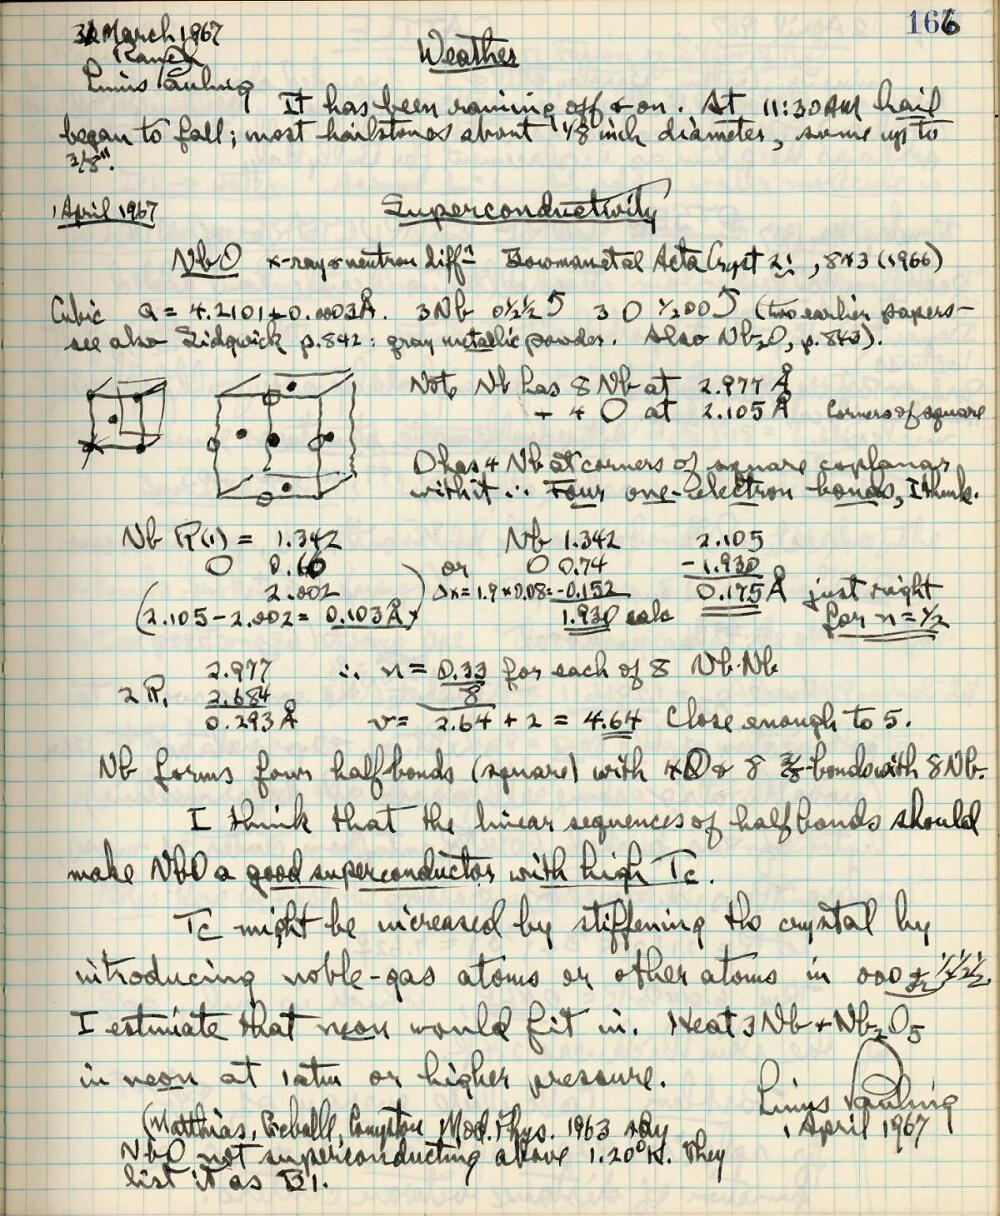 166
31 March 1967
Ranch
Linus Pauling
Weather
It has been raining off & on. At 11:30 AM hail
began to fall; most hailstones about 1/8 inch diameter, some up to
3/8".
1 April 1967
Superconductivity
NbO x-ray & neutron diffn Bowman et al Acta Cryst 21, 843 (1966)
Cubic a = 4.2101 ± 0.0003 Å. 3 Nb 0½½ 5 3 O ½00 5 (two earlier papers –
see also Sidgwick p. 842: gray metallic powder. Also Nb2O, p. 843).
Note Nb has 8 Nb at 2.977 Å
+ 4 O at 2.105 Å Corners of square
O has 4 Nb at corners of square coplanar
with it ∴ Four one-electron bonds, I think.
Nb R(1) = 1.342 Nb 1.342 2.105
O 0.66 or O 0.74 - 1.930
2.002 Δx = 1.9 x 0.08 = -0.152 0.175 Å just right
(2.105 - 2.002 = 0.103 Å) 1.930 calc for n = ½
2.977 ∴ n = 0.33 for each of 8 Nb-Nb
2 R1 2.684 8
0.293 Å v = 2.64 + 2 = 4.64 Close enough to 5.
Nb forms four half bonds (square) with 4 O & 8 3/8-bonds with 8 Nb.
I think that the linear sequences of half bonds should
make NbO a good superconductor with high Tc.
Tc might be increased by stiffening the crystal by
introducing noble-gas atoms or other atoms in 000 ½½½.
I estimate that neon would fit in. Heat 3 Nb + Nb2O5
in neon at 1 atm or higher pressure.
Linus Pauling
1 April 1967
(Matthias, Geballe, Compton Mod. Phys. 1963 say
NbO not superconducting above 1.20°K. They
list it as B1.